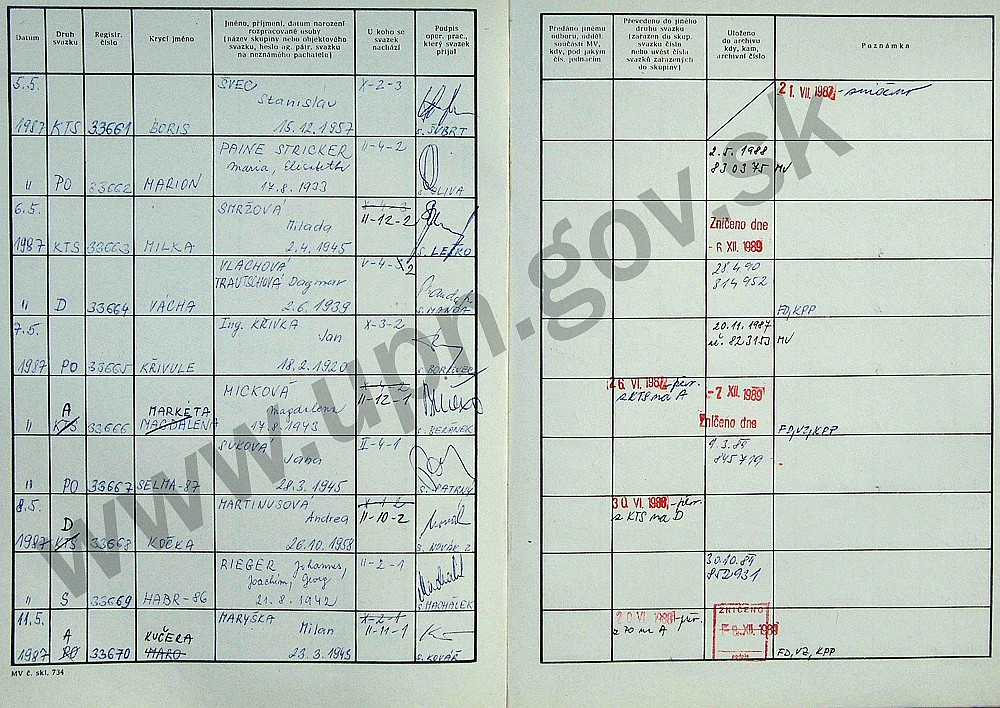 Datum
Druh svazku
Registr. číslo
Krycí jméno
Jméno, příjmení, datum narození
rozpracované osoby
(název skupiny nebo objektového
svazku, heslo ag. pátr. svazku
na neznámého pachatele)
U koho se svazek nachází
Podpis oper. prac., který svazek přijal
Předáno jinému odboru, odděl. součásti MV, kdy, pod jakým čís. jednacím
Převedeno do jiného druhu svazku (zařazen do skup. svazku číslo nebo uvést čísla svazků zařazených do skupiny)
Uloženo do archivu kdy, kam, archivní číslo
Poznámka
5.5. ŠVEC X-2-3 21. VII. 1987
Stanislav
1987 KTS 33661 BORIS 15.12.1957 s. ŠUBRT
PAINE STRICKER II-4-2 2.5.1988
Maria, Elisabeth 830375 MV
" PO 33662 MARION 17.8.1933 s. SLIVA
6.5. SMRŽOVÁ X-4-3
Milada II-12-2 Zničeno dne
1987 KTS 33663 MILKA 2.4.1945 s. LEŤKO - 6 XII. 1989
VLACHOVÁ V-4-2 28490
TRAUTSCHOVÁ Dagmar 814952
" D 33664 VÁCHA 2.6.1939 s. MANDA FD, KPP
7.5. Ing. KŘIVKA X-3-2 20.11.1987
Jan 823153 MV
1987 PO 33665 KŘIVULE 18.2.1920 s. BOROVEC
MICKOVÁ X-4-2 26. VI. 1987 - přer. - 7 XII. 1989
A MARKÉTA Magdalena II-12-1 z KTS na A
" KTS 33666 MAGDALENA 17.8.1943 s. BERÁNEK Zničeno dne FD, VZ, KPP
SUKOVÁ II-4-1 9.3.89
Jana 845719
" PO 33667 SELMA-87 28.3.1945 s. PATRNÝ
8.5. MARTINUSOVÁ X-1-2 30. VI. 1988 - přer.
D Andrea II-10-2 z KTS na D
1987 KTS 33668 KOČKA 26.10.1958 s. NOVÁK Z.
RIEGER Johannes, II-2-1 30.10.89
Joachim, Georg 852931
" S 33669 HABR-86 21.8.1942 s. MACHÁLEK
11.5. MARYŠKA X-2-1 20. VI. 1988 - přer. ZNIČENO
A KUČERA Milan II-11-1 z PO na A XII. 1989
1987 PO 33670 MARO 23.3.1945 s. KOVÁŘ FD, VZ, KPP
MV č. skl. 734
www.upn.gov.sk